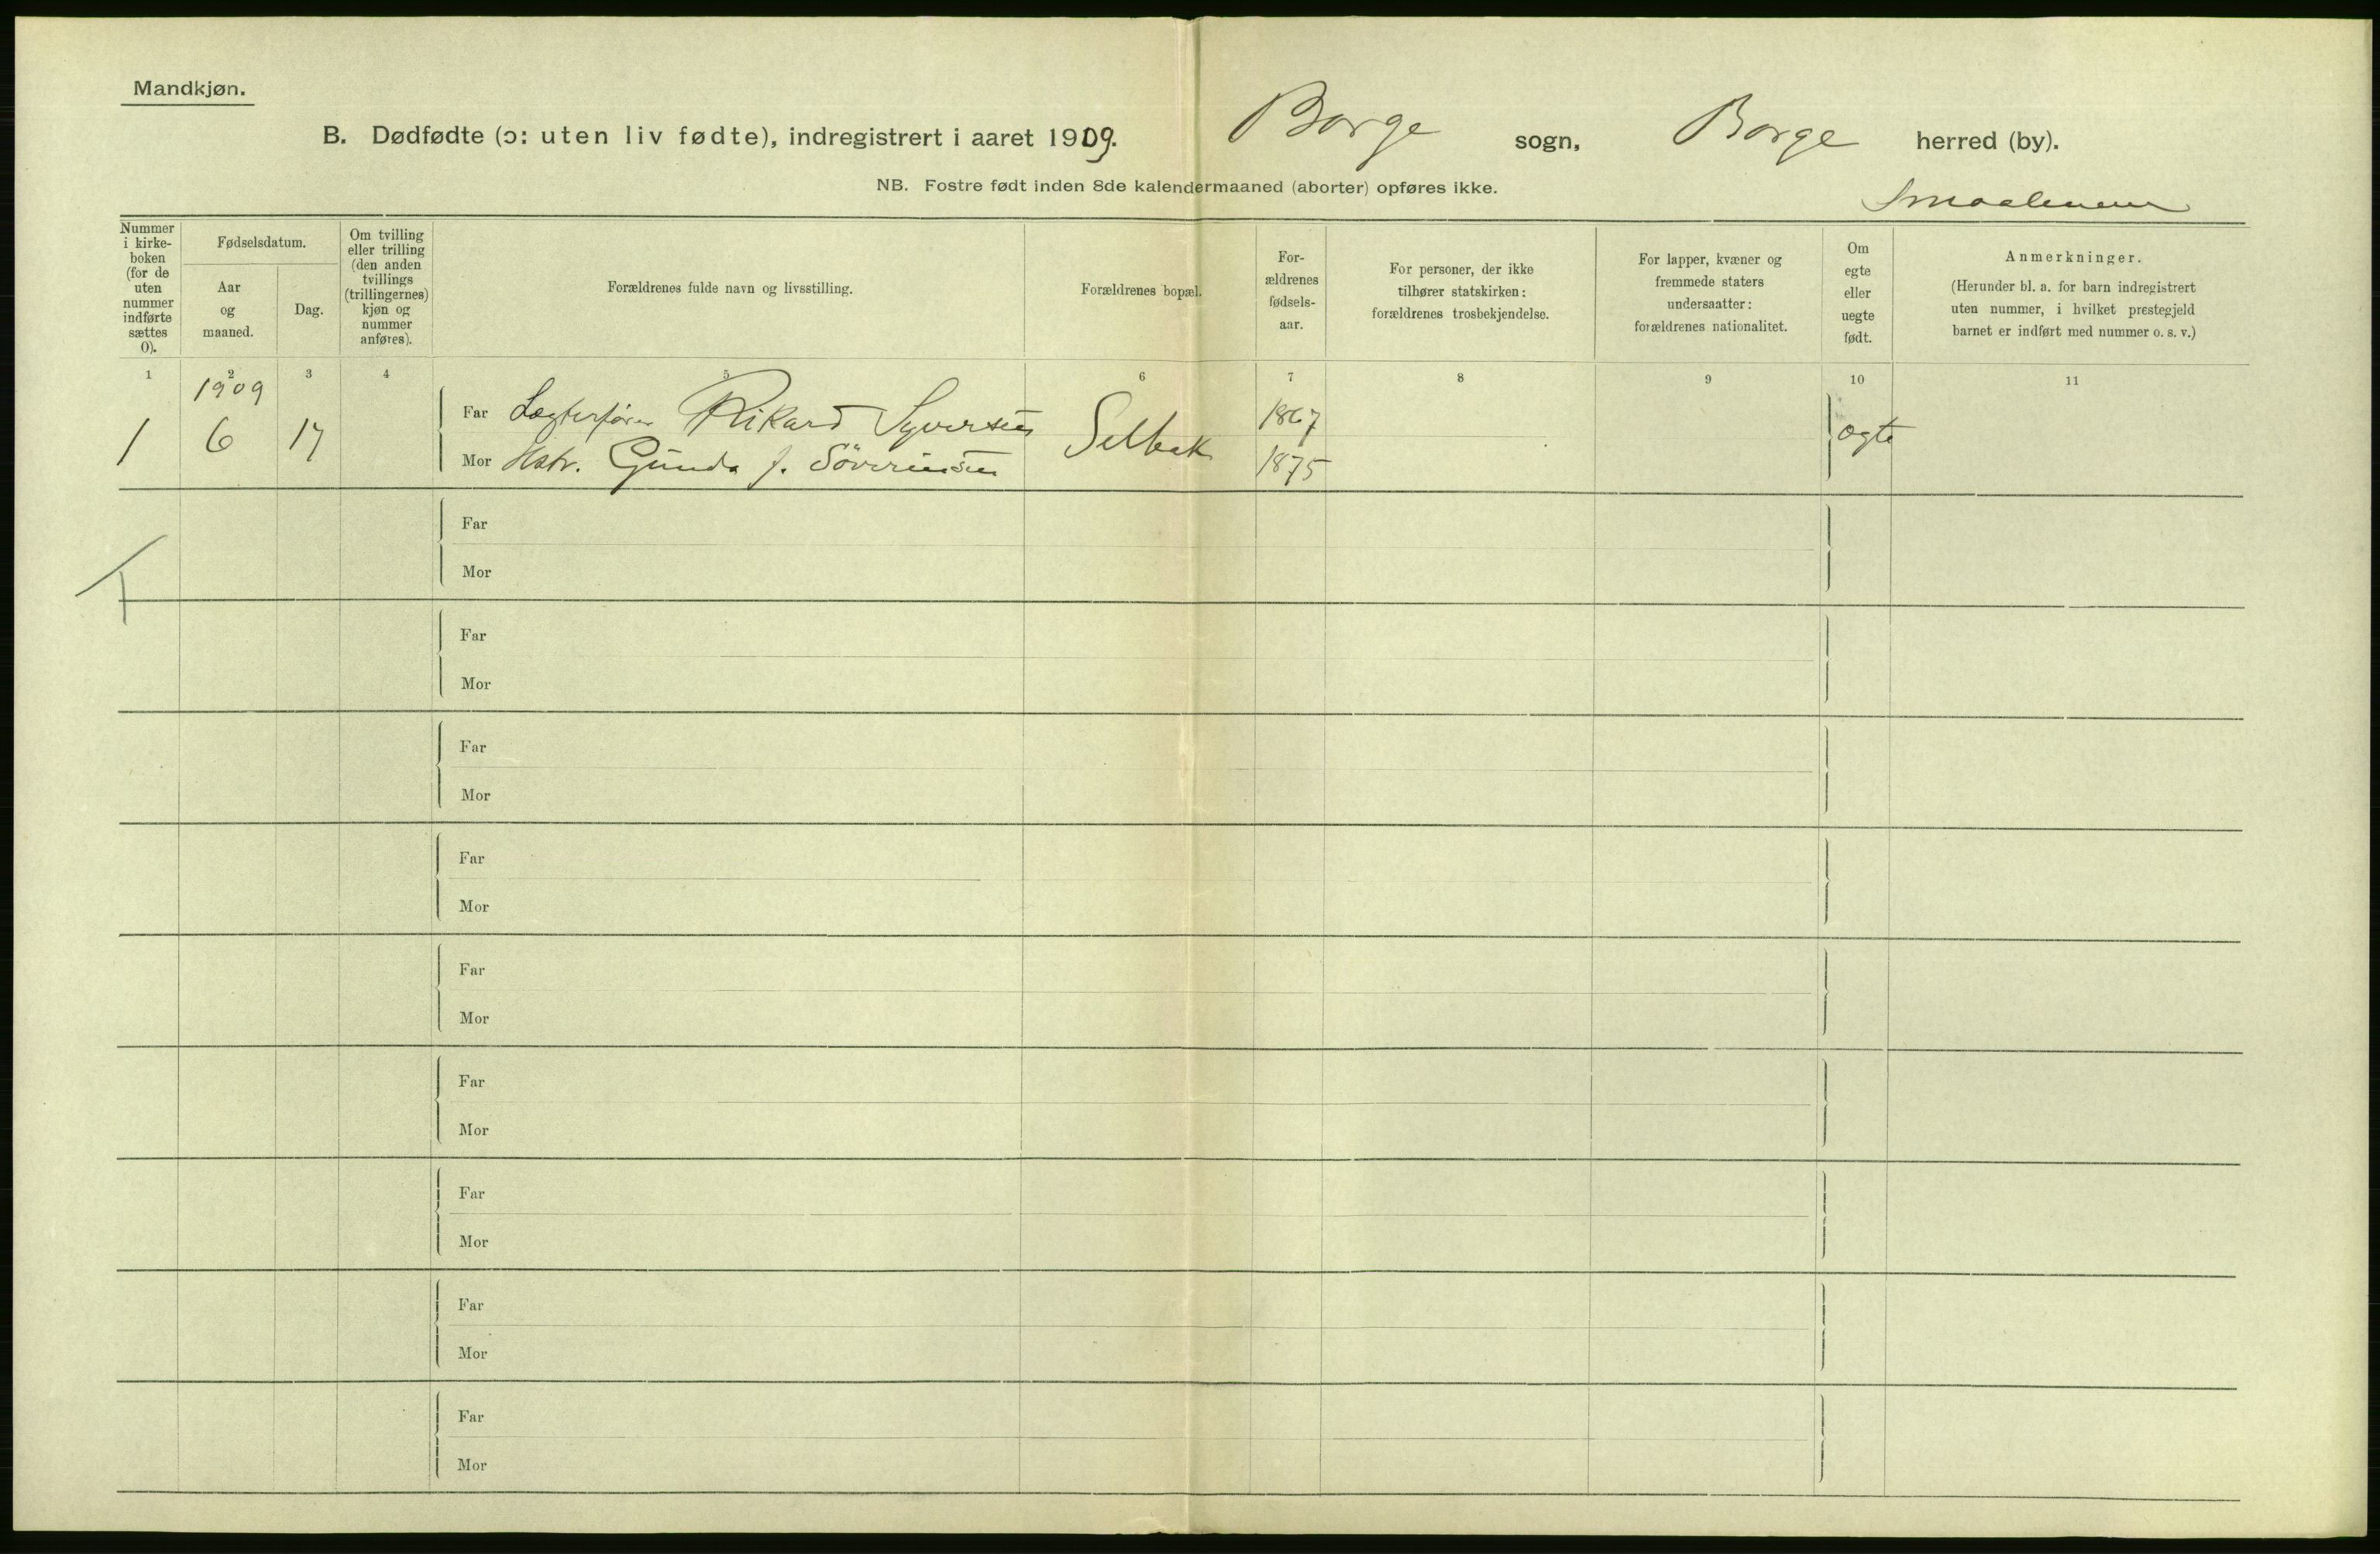 Mandkjøn.
B. Dødfødte (ɔ: uten liv fødte), indregistrert i aaret 1909. Borge sogn, Borge herred (by).
NB. Fostre født inden 8de kalendermaaned (aborter) opføres ikke.
Smaalenene
Nummer
i kirke-
boken
(for de
uten
nummer
indførte
sættes
0).
Fødselsdatum.
Aar
og
maaned.
Dag.
Om tvilling
eller trilling
(den anden
tvillings
(trillingernes)
kjøn og
nummer
anføres).
Forældrenes fulde navn og livsstilling.
Forældrenes bopæl.
For-
ældrenes
fødsels-
aar.
For personer, der ikke
tilhører statskirken:
forældrenes trosbekjendelse.
For lapper, kvæner og
fremmede staters
undersaatter:
forældrenes nationalitet.
Om
egte
eller
uegte
født.
Anmerkninger.
(Herunder bl. a. for barn indregistrert
uten nummer, i hvilket prestegjeld
barnet er indført med nummer o. s. v.)
1 2 3 4 5 6 7 8 9 10 11
1909
1 6 17 Far Lægterfører Rikard Syversen Selbak 1867 ægte
Mor Hstr. Gunda f. Søverinsen 1875
Far
Mor
Far
Mor
Far
Mor
Far
Mor
Far
Mor
Far
Mor
Far
Mor
Far
Mor
Far
Mor